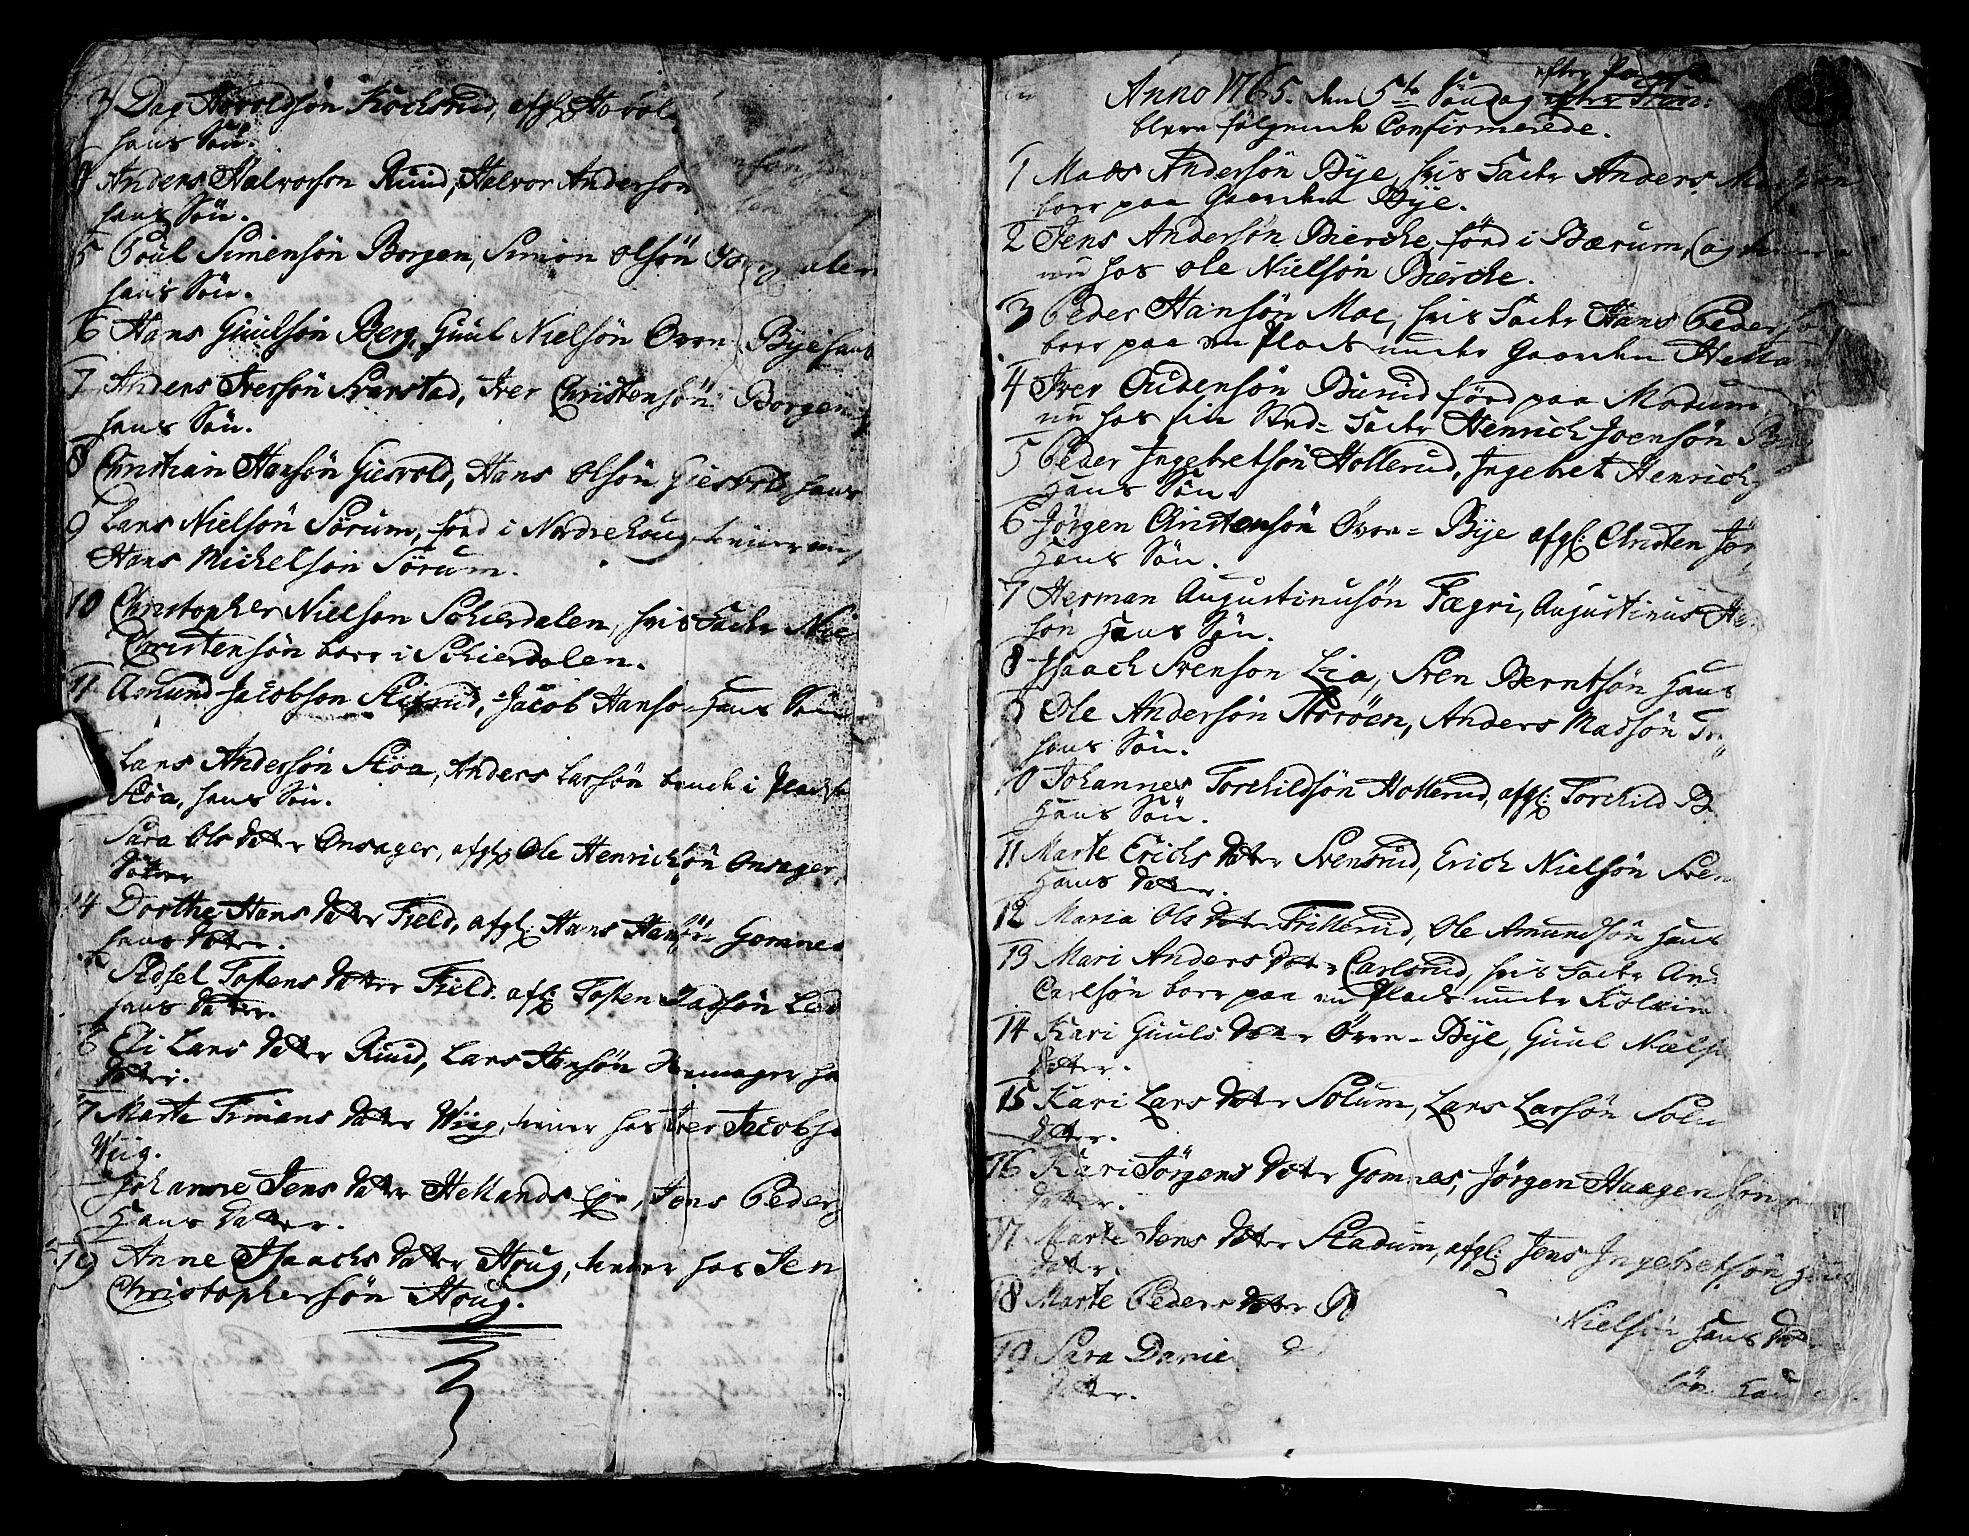 3 Dag Haroldsön Kochsrud, afg: Harol
hans Sön.
4 Anders Halvorsön Ruud, Halvor Anderson
hans Sön.
5 Poul Simensön Borgen, Simon Olsön
hans Sön.
6 Hans Guulsön Berg, Guul Nielsön Øvre Bye hans
7 Anders Iversön Svarstad, Iver Christensön Borgen
hans Sön.
8 Christian Hansön Giesvold, Hans Olsön Giesvold hans
9 Lars Nielsön Sörum, förd i Nordrehoug tiener
Hans Michelsön Sörum.
10 Christopher Nielsen Schierdalen, hvis Fader Nie
Christensön boer i Schierdalen.
11 Amund Jacobsön, Jacob Hansö Hans Sön
Lars Andersön Stöa, Anders Larsön i Pladset
Stöa, hans Sön.
Sara Ols Dotter Onsager, afg: Ole Henrichsön Onsager,
Dotter
14 Dorthe Hans Dotter Field, afg: Hans Hansön Gomnes
hans Dotter.
Sidsel Tostens Dotter Field. afg: Tosten
hans Dotter.
6 Eli Lars Dotter Ruud, Lars Hansön ha
Dotter.
7 Marte Simens Dotter Wiig, tiener hos Iver Jacobsö
Wiig.
Johanne Jens Dotter Hellands Eye, Jens Peders
Hans Dotter.
19 Anne Isaachs Dotter Houg, tiener hos Jen
Christophersön Houg.
Anno 1765. den 5te Söndag efter Paaske
bleve fölgende Confirmerede.
1 Mads Andersön Bye, hvis Fader Anders Madsön
boer paa Gaarden Bye.
2 Jens Andersön Bierche, förd i Bærum, og tiener
nu hos Ole Nielsön Bierche.
3 Peder Hansön Moe, hvis Fader Hans Pedersö
boer paa en Plads under Gaarden Hellan
4 Iver Gudensön Burud förd paa Modum,
nu hos sin Sted=Fader Henrich Joensön
5 Peder Ingebretsön Hollerud, Ingebret Henrich
Hans Sön.
6 Jörgen Christensön Øvre=Bye afg: Christen Jör
Hans Sön.
7 Herman Augustinusön Fægri, Augustinus Her
sön Hans Sön.
8 Isaach Svensön Lia, Sven Berntsön Hans
9 Ole Andersön, Anders Madsön
hans Sön.
10 Johannes Torchildsön Hollerud, afg: Torchild
Hans Sön.
11 Marte Erichs Dotter Svensrud, Erich Nielsön Sven
Hans Dotter.
12 Maria Ols Dotter Trillerud, Ole Amundsön Hans
13 Mari Anders Dotter Carlsrud, hvis Fader An
Carlsön boer paa en Plads under
14 Kari Guuls Dotter Øvre=Bye, Guul Niels
Dotter.
15 Kari Lars Dotter Solum, Lars Larsön Solu
Dotter.
16 Kari Jörgens Dotter Gomnes, Jörgen Haagensön
Dotter.
17 Marte Jens Dotter Stadum, afg: Jens Ingebretsön Hans
Dotter.
18 Marte Peders Dotter Nielsön Hans Dot
19 Sara Danie d sön Hans
Dotter.